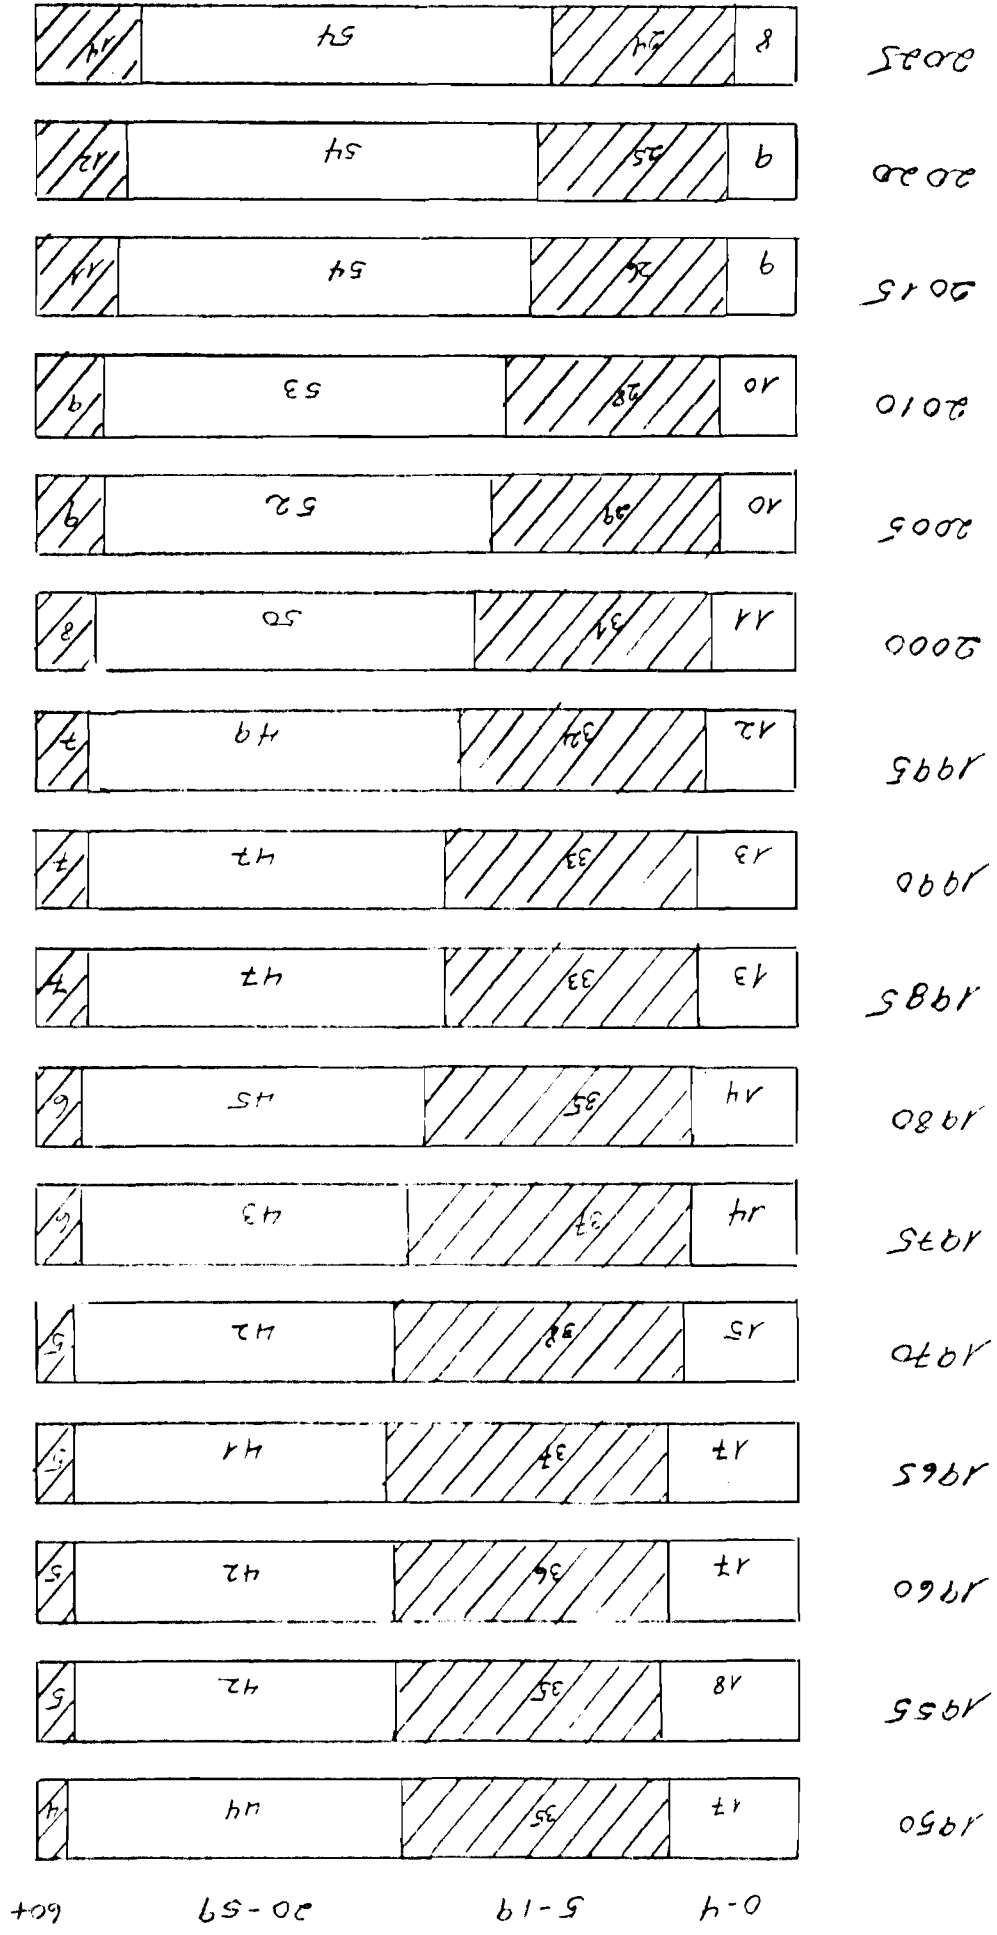 0-4 5-19 20-59 60+
1950 17 35 44 4
1955 18 35 42 5
1960 17 36 42 5
1965 17 37 41 5
1970 15 38 42 5
1975 14 37 43 6
1980 14 35 45 6
1985 13 33 47 7
1990 13 33 47 7
1995 12 32 49 7
2000 11 31 50 8
2005 10 29 52 9
2010 10 28 53 9
2015 9 26 54 11
2020 9 25 54 12
2025 8 24 54 14